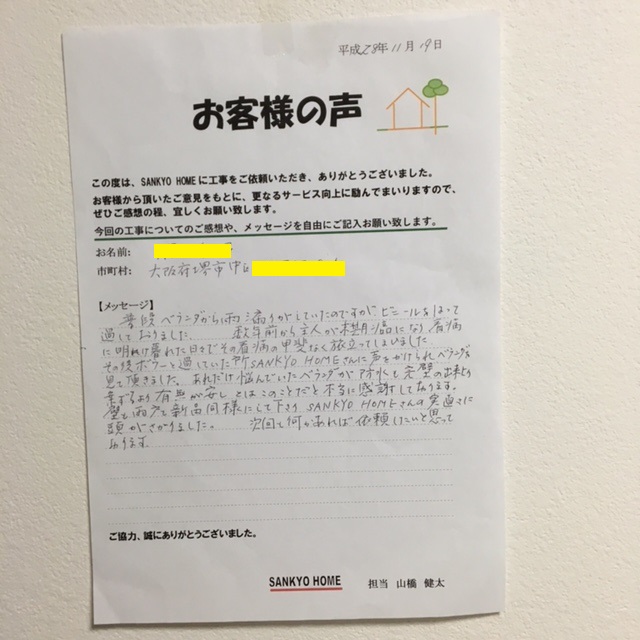 平成28年11月19日
お客様の声
この度は、SANKYO HOMEに工事をご依頼いただき、ありがとうございました。
お客様から頂いたご意見をもとに、更なるサービス向上に励んでまいりますので、
ぜひご感想の程、宜しくお願い致します。
今回の工事についてのご感想や、メッセージを自由にご記入お願い致します。
お名前:
市町村: 大阪府堺市中区
【メッセージ】
普段ベランダから雨漏りがしていたのですが、ビニールをはって
過しておりました 数年前から主人が 病になり看病
に明け暮れた日々でその看病の甲斐なく旅立ってしまいました
その後ボウーと過していた所SANKYO HOMEさんに声をかけられベランダを
見て頂きました。あれだけ悩んでいたベランダが 防水も完璧の出来
案ずるより有無が安しとはこのことだと本当に感謝しております。
壁も雨戸も新品同様にして下さりSANKYO HOMEさんの実直さに
頭がさがりました。 次回も何かあれば依頼したいと思って
おります
ご協力、誠にありがとうございました。
SANKYO HOME 担当 山橋 健太